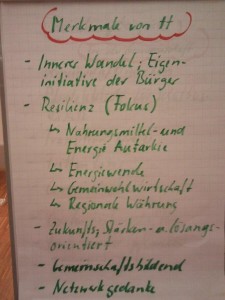 Merkmale von TT
- Innerer Wandel; Eigen-
initiative der Bürger
- Resilienz (Fokus)
↳ Nahrungsmittel- und
Energie Autarkie
↳ Energiewende
↳ Gemeinwohlwirtschaft
↳ Regionale Währung
- Zukunfts, Stärken- u. lösungs-
orientiert
- Gemeinschaftsbildend
- Netzwerkgedanke